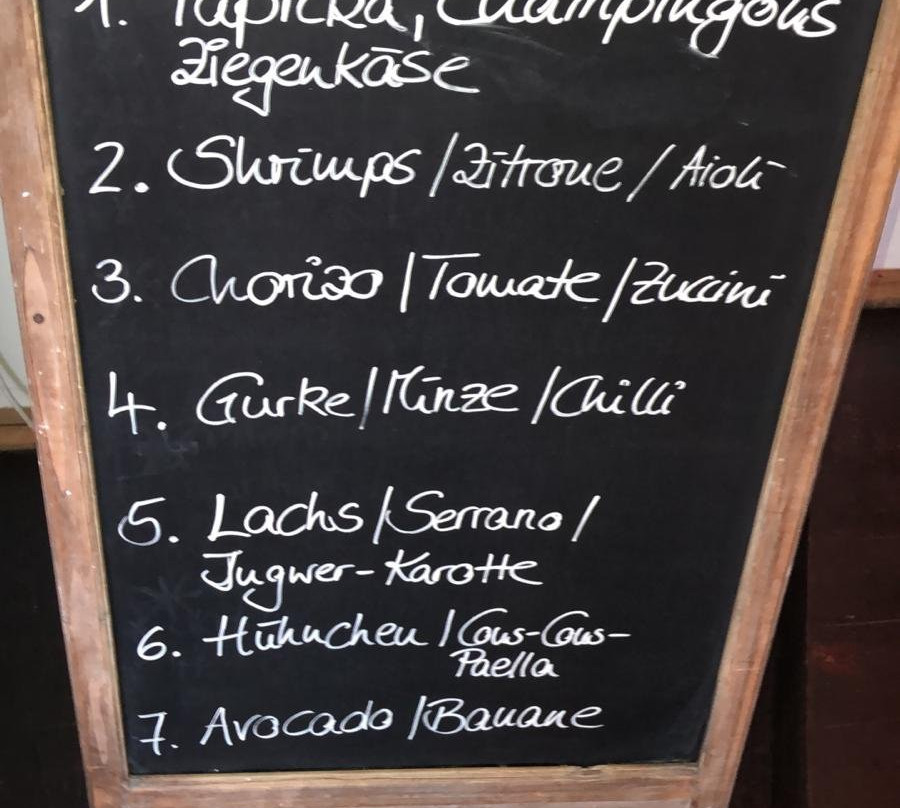 1. Paprika, Champingons
Ziegenkäse
2. Shrimps / Zitrone / Aioli
3. Chorizo / Tomate / Zuccini
4. Gurke / Minze / Chilli
5. Lachs / Serrano /
Ingwer-Karotte
6. Hühnchen / Cous-Cous-
Paella
7. Avocado / Banane